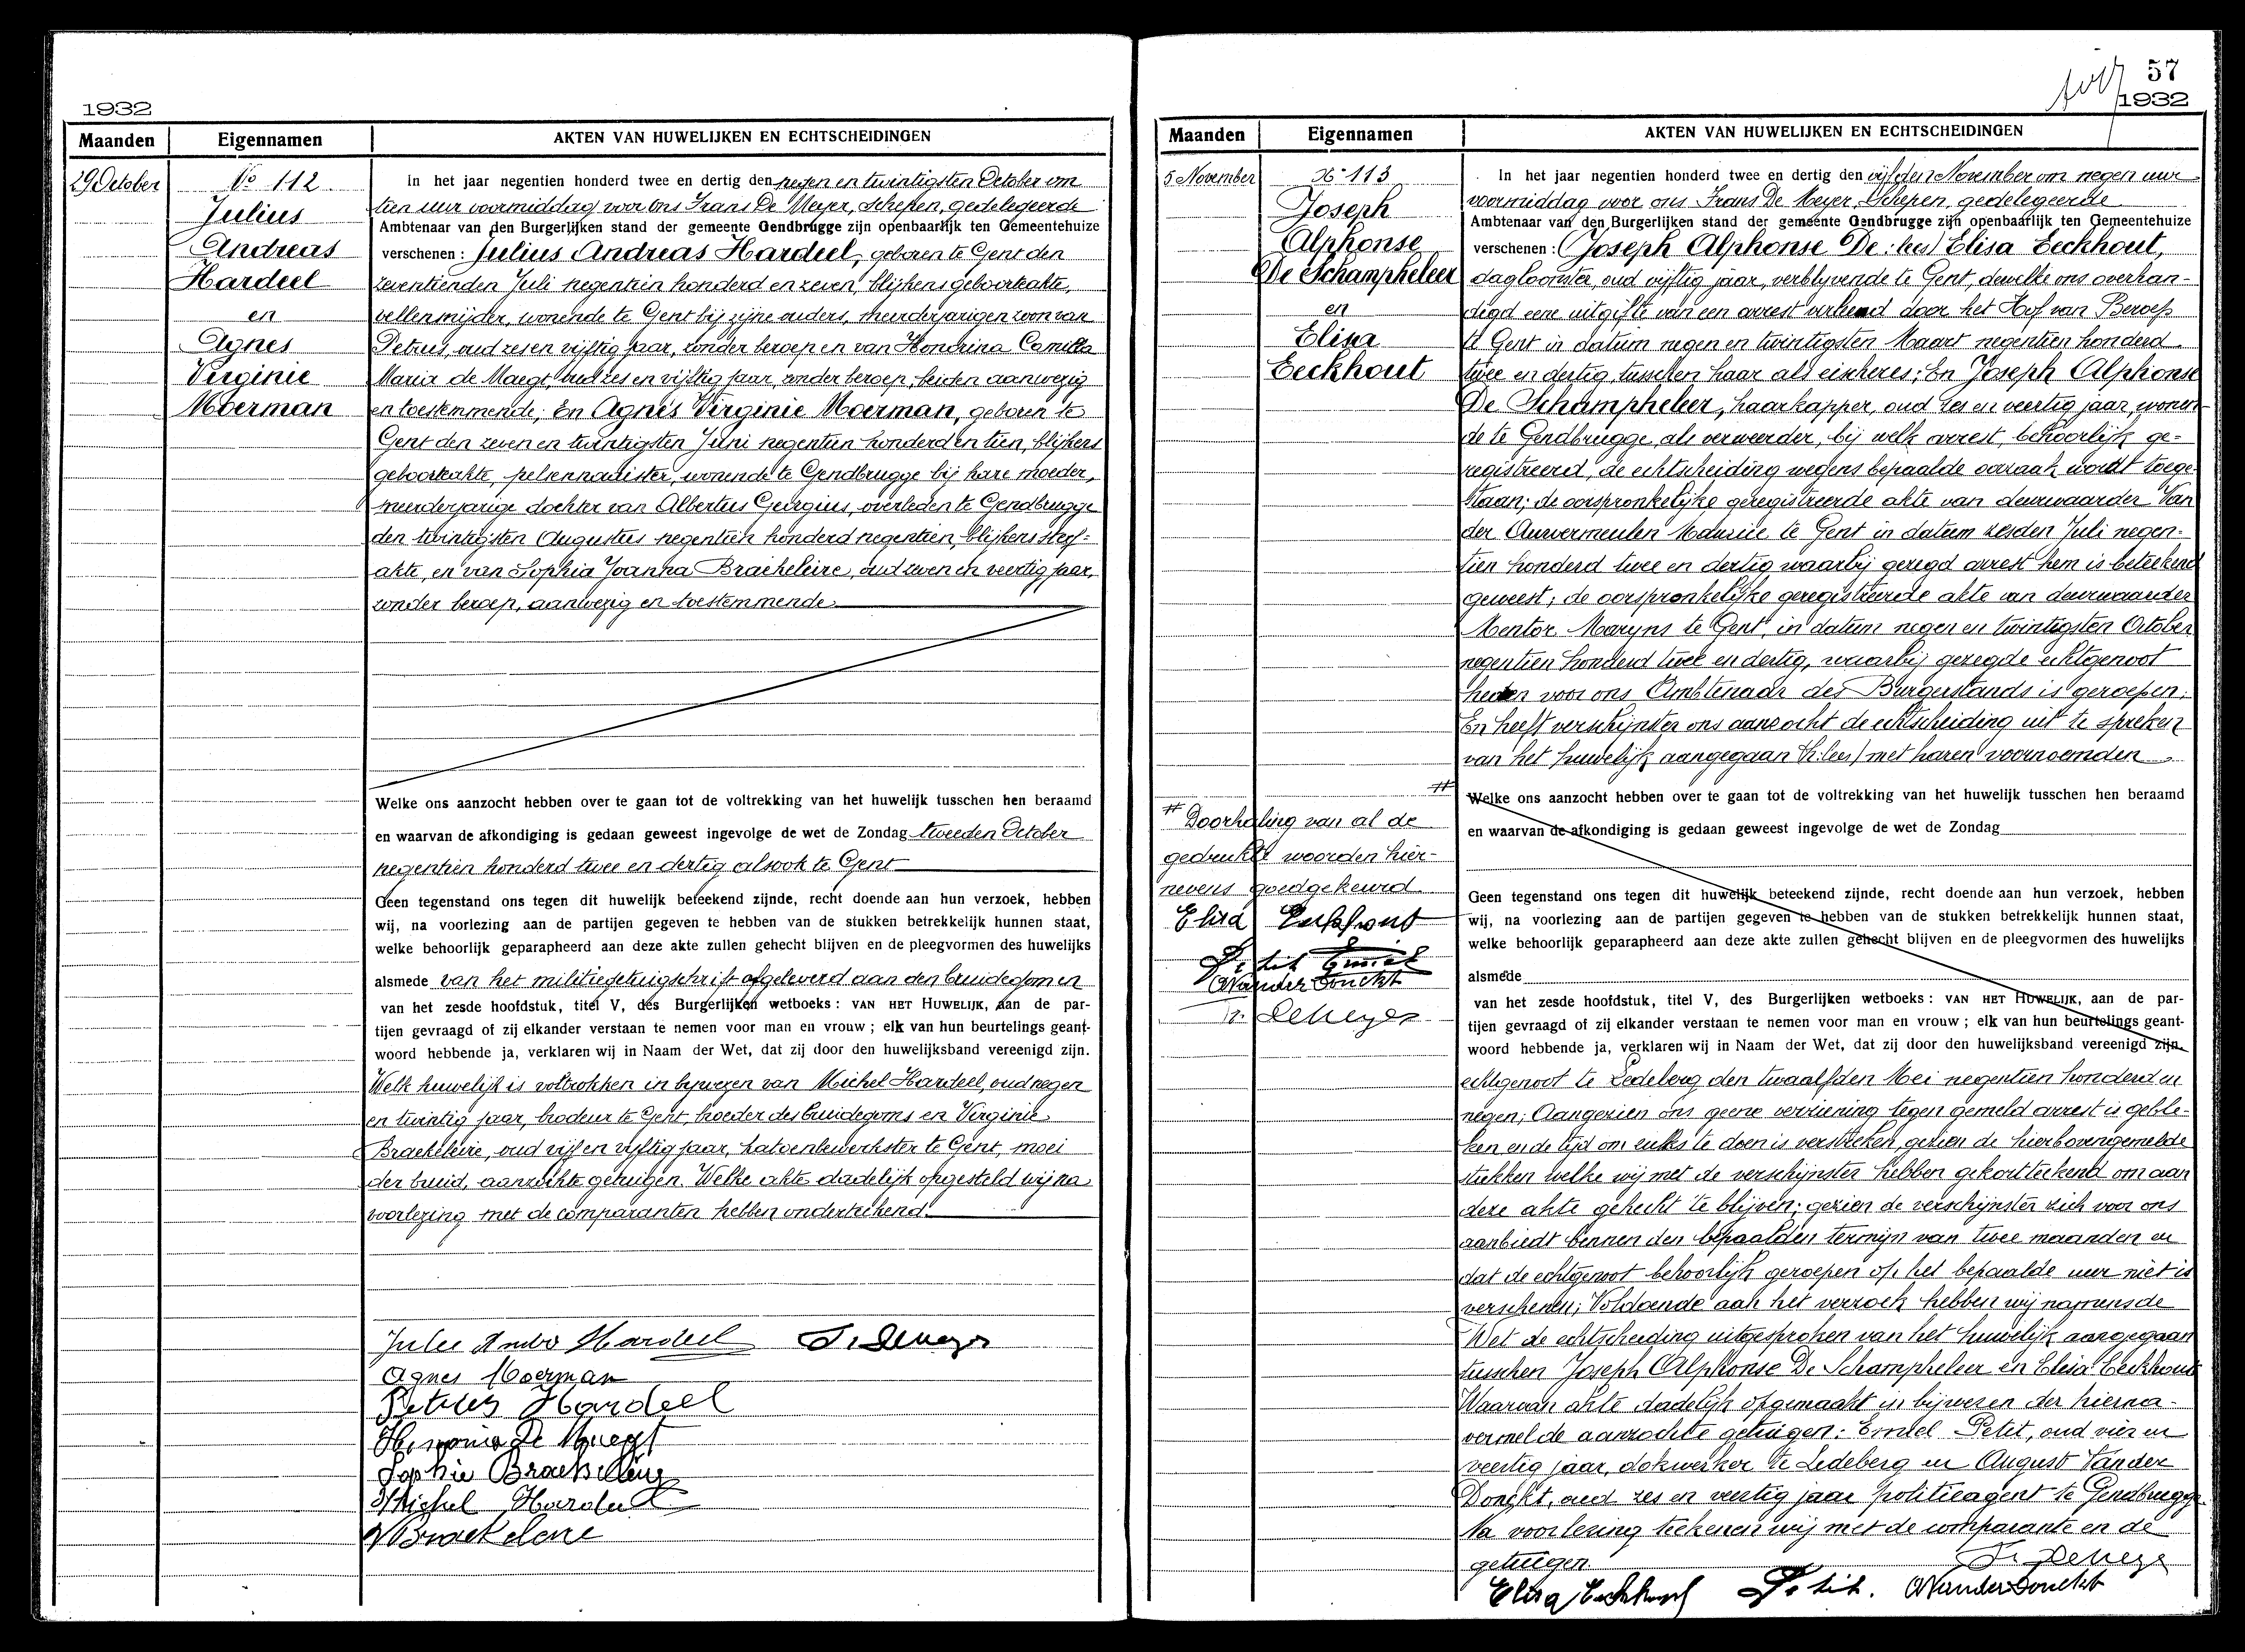 1932
Maanden Eigennamen AKTEN VAN HUWELIJKEN EN ECHTSCHEIDINGEN
29 October
No 112
Julius
Andreas
Hardeel
en
Agnes
Virginie
Moerman
In het jaar negentien honderd twee en dertig den negen en twintigsten October om
tien uur voormiddag voor ons Frans De Meyer, Schepen, gedelegeerde
Ambtenaar van den Burgerlijken stand der gemeente Gendbrugge zijn openbaarlijk ten Gemeentehuize
verschenen: Julius Andreas Hardeel, geboren te Gent den
zeventienden Juli negentien honderd en zeven, blijkens geboorteakte,
vellensnijder, wonende te Gent bij zijne ouders, meerderjarigen zoon van
Petrus, oud zes en vijftig jaar, zonder beroep en van Hondrina Camilla
Maria de Maegt, oud zes en vijftig jaar, zonder beroep, beiden aanwezig
en toestemmende; En Agnes Virginie Moerman, geboren te
Gent den zeven en twintigsten Juni negentien honderd en tien, blijkens
geboorteakte, pelsennaaister, wonende te Gendbrugge bij hare moeder,
meerderjarige dochter van Albertus Georgius, overleden te Gendbrugge
den twintigsten Augustus negentien honderd negentien, blijkens sterf-
akte, en van Sophia Joanna Braekeleire, oud zeven en veertig jaar,
zonder beroep, aanwezig en toestemmende.
Welke ons aanzocht hebben over te gaan tot de voltrekking van het huwelijk tusschen hen beraamd
en waarvan de afkondiging is gedaan geweest ingevolge de wet de Zondag tweeden October
negentien honderd twee en dertig alsook te Gent
Geen tegenstand ons tegen dit huwelijk beteekend zijnde, recht doende aan hun verzoek, hebben
wij, na voorlezing aan de partijen gegeven te hebben van de stukken betrekkelijk hunnen staat,
welke behoorlijk geparapheerd aan deze akte zullen gehecht blijven en de pleegvormen des huwelijks
alsmede van het militiegetuigschrift afgeleverd aan den bruidegom en
van het zesde hoofdstuk, titel V, des Burgerlijken wetboeks: VAN HET HUWELIJK, aan de par-
tijen gevraagd of zij elkander verstaan te nemen voor man en vrouw; elk van hun beurtelings geant-
woord hebbende ja, verklaren wij in Naam der Wet, dat zij door den huwelijksband vereenigd zijn.
Welk huwelijk is voltrokken in bijwezen van Michel Hardeel, oud negen
en twintig jaar, te Gent, broeder des bruidegoms en Virginie
Braekeleire, oud vijf en vijftig jaar, katoenbewerkster te Gent, moei
der bruid, aanzochte getuigen. Welke akte dadelijk opgesteld wij na
voorlezing met de comparanten hebben onderteekend.
Jules André Hardeel F. Demeyer
Agnes Moerman
Petrus Hardeel
De Maegt
Sophie Braekeleire
Michel Hardeel
V Braekeleire
57
1932
Maanden Eigennamen AKTEN VAN HUWELIJKEN EN ECHTSCHEIDINGEN
5 November
No 113
Joseph
Alphonse
De Schampheleer
en
Elisa
Eeckhout
In het jaar negentien honderd twee en dertig den vijfden November om negen uur
voormiddag voor ons Frans De Meyer, Schepen, gedelegeerde
Ambtenaar van den Burgerlijken stand der gemeente Gendbrugge zijn openbaarlijk ten Gemeentehuize
verschenen: (Joseph Alphonse De: lees) Elisa Eeckhout,
dagloonster, oud vijftig jaar, verblijvende te Gent, dewelke ons overhan-
digd eene uitgifte van een arrest verleend door het Hof van Beroep
te Gent in datum negen en twintigsten Maart negentien honderd
twee en dertig tusschen haar als eischeres; En Joseph Alphonse
De Schampheleer, haarkapper, oud zes en veertig jaar, wonen-
de te Gendbrugge, als verweerder, bij welk arrest, behoorlijk ge-
registreerd, de echtscheiding wegens bepaalde oorzaak wordt toege-
staan; de oorspronkelijke geregistreerde akte van deurwaarder Van
der Auwermeulen Maurice te Gent in datum zesden Juli negen-
tien honderd twee en dertig waarbij gezegd arrest hem is beteekend
geweest; de oorspronkelijke geregistreerde akte van deurwaarder
Mentor Maryns te Gent, in datum negen en twintigsten October
negentien honderd twee en dertig, waarbij gezegde echtgenoot
heden voor ons Ambtenaar des Burgerstands is geroepen;
En heeft verschijnster ons aanzocht de echtscheiding uit te spreken
van het huwelijk aangegaan (h: lees) met haren voornoemden
#
Welke ons aanzocht hebben over te gaan tot de voltrekking van het huwelijk tusschen hen beraamd
en waarvan de afkondiging is gedaan geweest ingevolge de wet de Zondag
Geen tegenstand ons tegen dit huwelijk beteekend zijnde, recht doende aan hun verzoek, hebben
wij, na voorlezing aan de partijen gegeven te hebben van de stukken betrekkelijk hunnen staat,
welke behoorlijk geparapheerd aan deze akte zullen gehecht blijven en de pleegvormen des huwelijks
alsmede
van het zesde hoofdstuk, titel V, des Burgerlijken wetboeks: VAN HET HUWELIJK, aan de par-
tijen gevraagd of zij elkander verstaan te nemen voor man en vrouw; elk van hun beurtelings geant-
woord hebbende ja, verklaren wij in Naam der Wet, dat zij door den huwelijksband vereenigd zijn.
# Doorhaling van al de
gedrukte woorden hier-
nevens goedgekeurd.
Elisa Eeckhout
Petit Emiel
A Vander Donckt
Fr. Demeyer
echtgenoot te Ledeberg den twaalfden Mei negentien honderd en
negen; Aangezien ons geene verziening tegen gemeld arrest is geble-
ken en de tijd om zulks te doen is verstreken, gezien de hierbovengemelde
stukken welke wij met de verschijnster hebben gekortteekend om aan
deze akte gehecht te blijven; gezien de verschijnster zich voor ons
aanbiedt binnen den bepaalden termijn van twee maanden en
dat de echtgenoot behoorlijk geroepen op het bepaalde uur niet is
verschenen; Voldoende aan het verzoek hebben wij namens de
Wet de echtscheiding uitgesproken van het huwelijk aangegaan
tusschen Joseph Alphonse De Schampheleer en Elisa Eeckhout
Waarvan akte dadelijk opgemaakt in bijwezen der hierna-
vermelde aanzochte getuigen: Emiel Petit, oud vier en
veertig jaar, dokwerker te Ledeberg en August Vander
Donckt, oud zes en veertig jaar politieagent te Gendbrugge
Na voorlezing teekenen wij met de comparante en de
getuigen.
Fr. Demeyer
Elisa Eeckhout Petit. A Vander Donckt